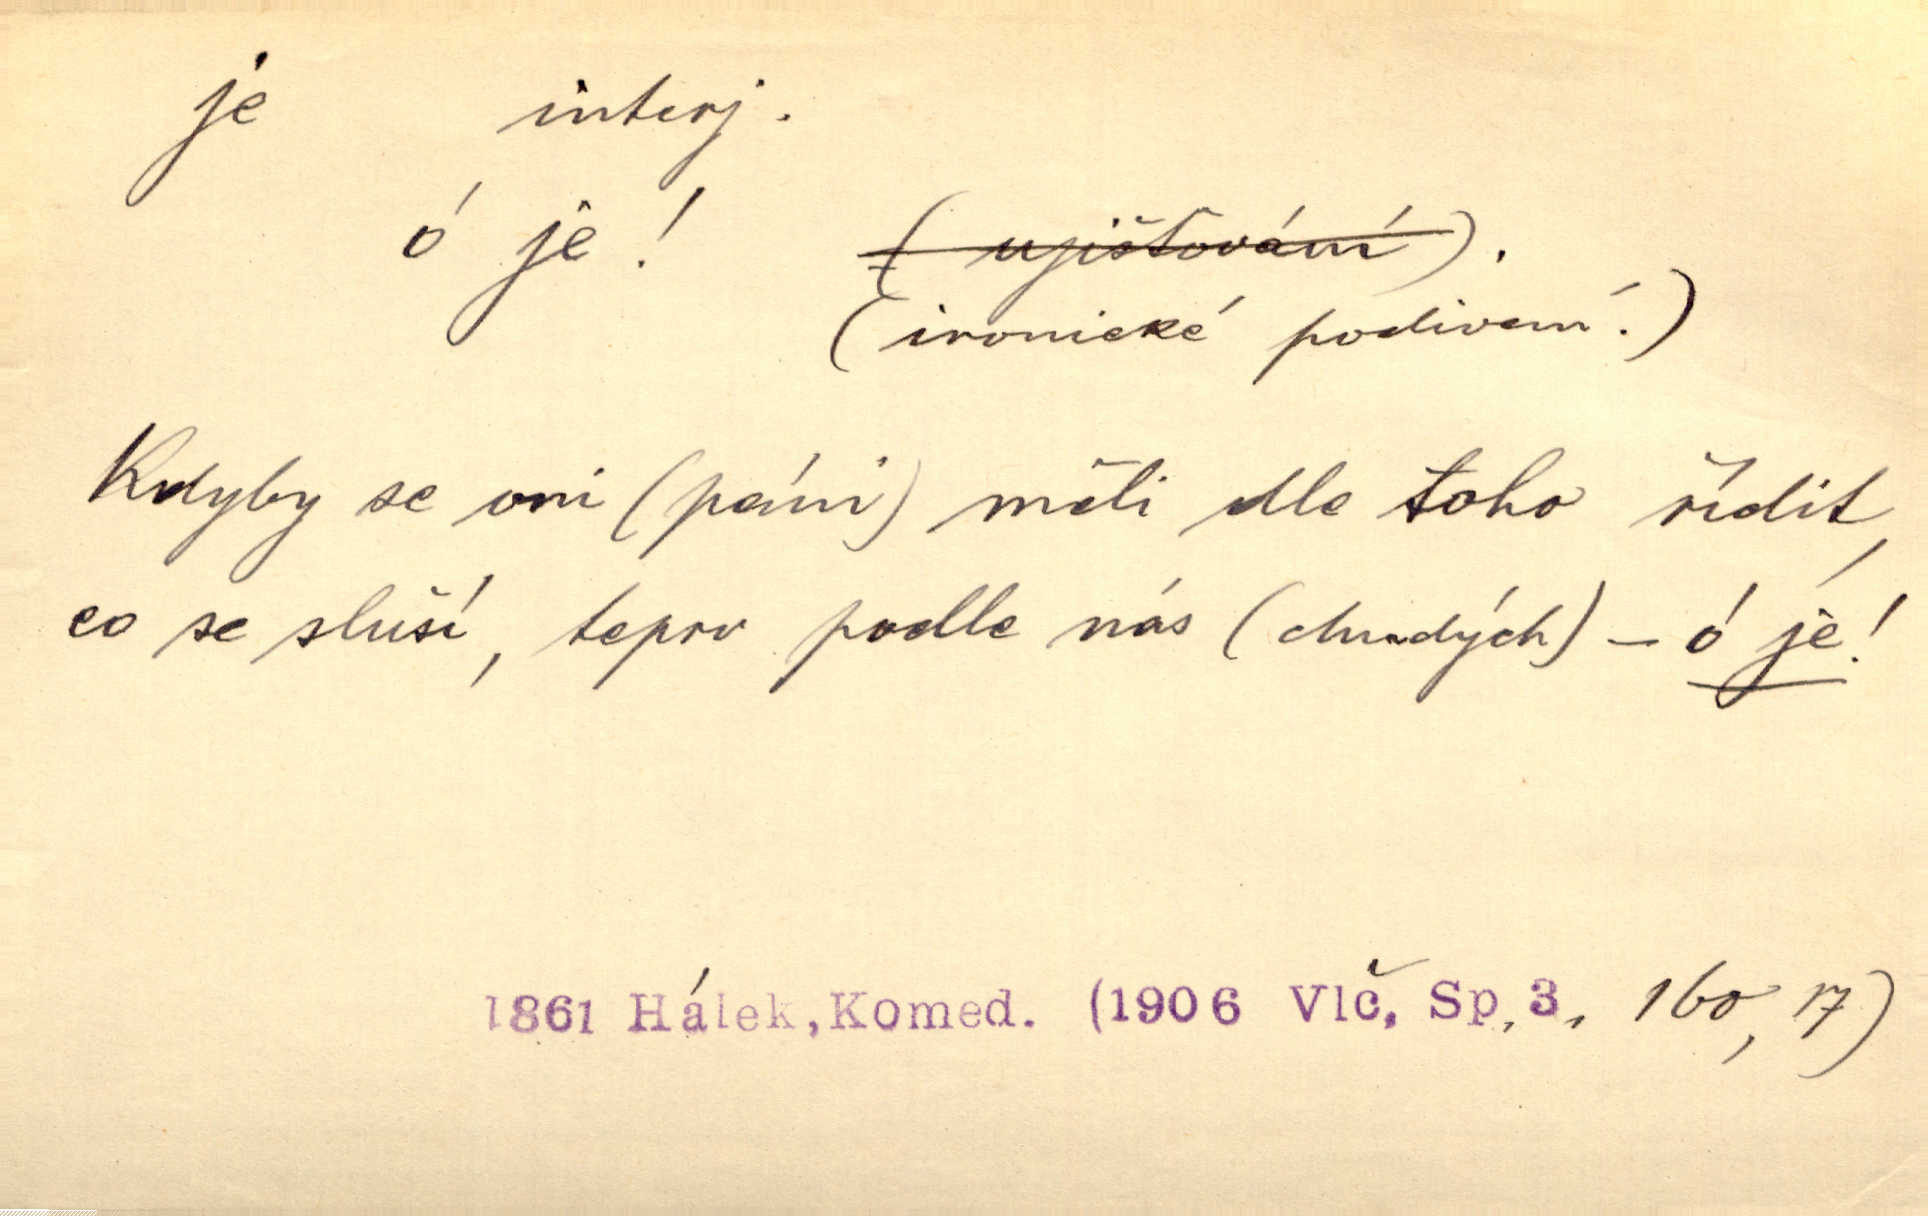 je interj.
ó je! (ujišťování).
(ironické podivení.)
Kdyby se oni (páni) měli dle toho řídit,
co se sluší, teprv podle nás (chudých) – ó je!
1861 Hálek, Komed. (1906 Vlč, Sp, 3, 160, 17)